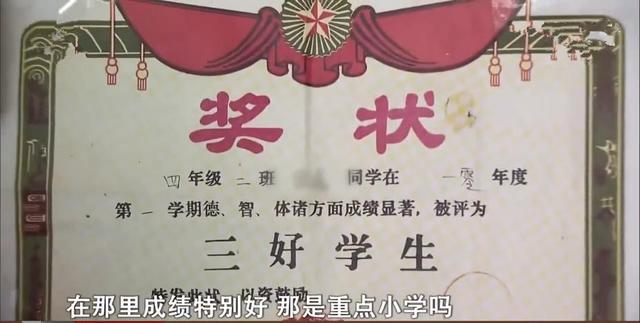 奖状
四年级二班 同学在 一零年度
第一学期德、智、体诸方面成绩显著，被评为
三好学生
特发此状 以资鼓励
在那里成绩特别好 那是重点小学吗